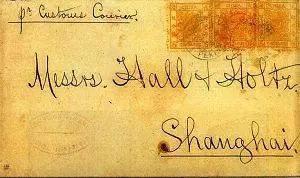 pr Customs Courier.
Messrs. Hall & Holtz.
Shanghai.